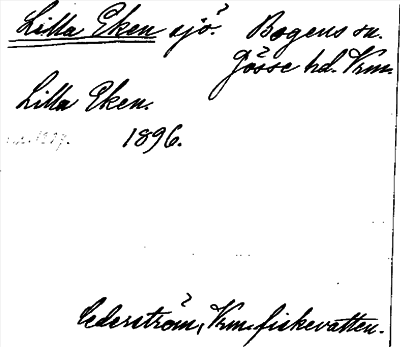 Lilla Eken sjö. Bogens sn.
Gösse hd. Vrm.
Lilla Eken.
1896.
Cederström, Vrm. fiskevatten.